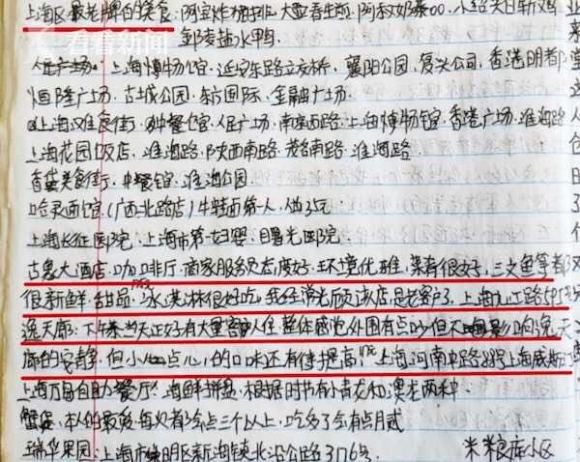 上海区最老牌的美食:阿宝炸猪排、大壶春生煎、阿叔奶茶00、小绍兴白斩鸡
看看新闻
盐水鸭
人民广场、上海博物馆、延安东路立交桥、襄阳公园、复兴公司、香港明都
恒隆广场、古城公园、东方国际、金融广场
上海美食街、人民广场、南京西路、上海博物馆、香港广场、淮海路
上海花园饭店、淮海路、陕西南路、茂名南路、淮海路
美食街、中餐馆、淮海公园
哈灵面馆(广西北路店)牛蛙面第一人、做3只
上海长征医院、上海市第一妇婴、曙光医院、
古象大酒店、咖啡厅、商家服务态度好、环境优雅、素有很好、三文鱼等都
很新鲜、甜品、冰淇淋很好吃、我经常光顾该店是老客户了、上海九江路
逸天廊、下午茶当天正好有大量客人住、整体感觉外围有点吵但不影响逸天
廊的安静、但小点心的口味还有待提高、上海河南中路 上海威斯
上海万岛自助餐厅、海鲜拼盘、根据时节有小青龙和澳龙两种
蟹 本人的最爱每次有了会点三个以上、吃多了会有点月贰
瑞华果园:上海市崇明区新海镇北沿公路3176号、
米粮库小区